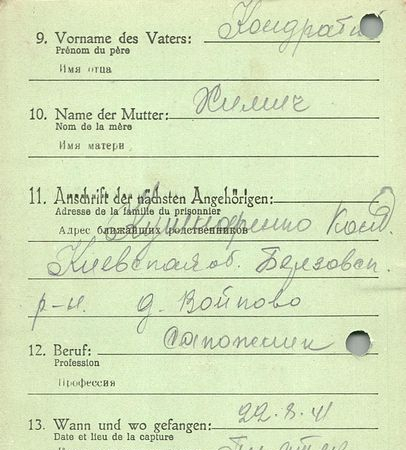 9. Vorname des Vaters: Кондратий
Prénom du père
Имя отца
10. Name der Mutter: Химич
Nom de la mère
Имя матери
11. Anschrift der nächsten Angehörigen:
Adresse de la famille du prisonnier
Адрес ближайших родственников
Киевская об. Березовск.
р-н. д. Войпово
12. Beruf: сапожник
Profession
Профессия
13. Wann und wo gefangen: 22.8.41
Date et lieu de la capture